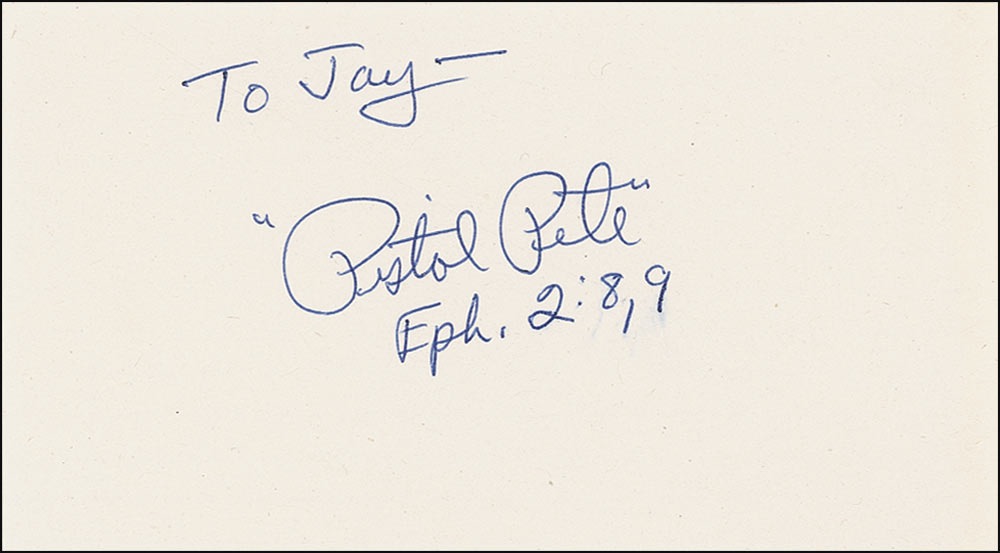 To Jay—
"Pistol Pete"
Eph. 2:8,9